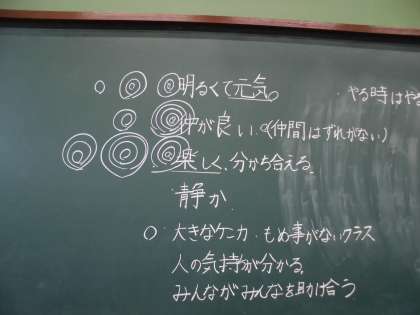 明るくて元気。
・やる時はや
仲が良い。(仲間はずれがない)
楽しく、分かち合える。
静か
大きなケンカ・もめ事がないクラス
人の気持が分かる。
みんながみんなを助け合う